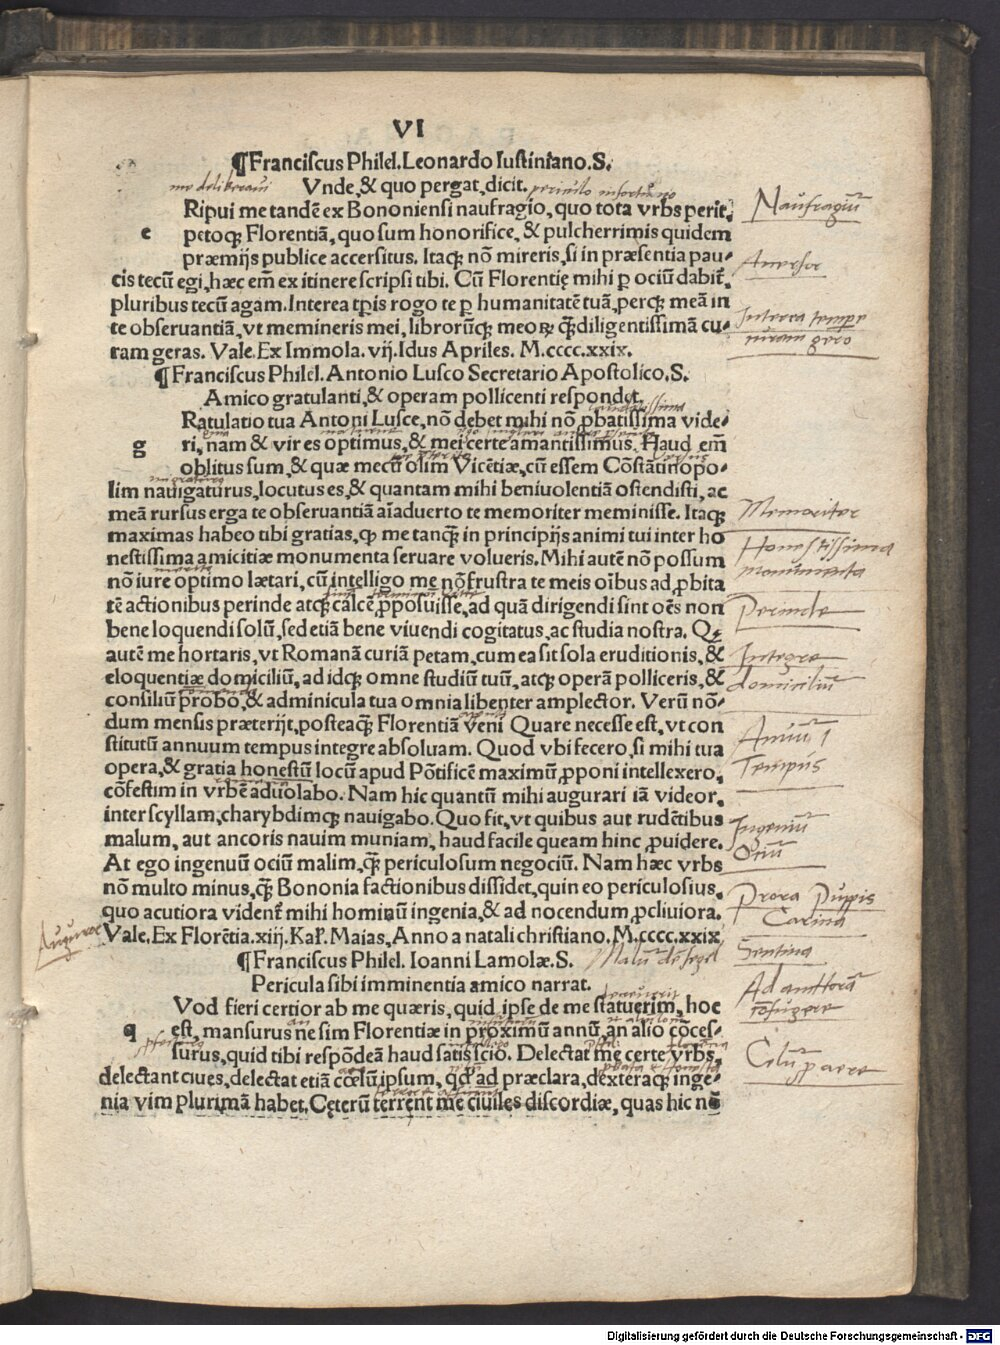 VI
¶Franciscus Philel. Leonardo Iustiniano. S.
Vnde, & quo pergat, dicit.
Ripui me tandē ex Bononiensi naufragio, quo tota vrbs perit,
e petoqꝫ Florentiā, quo sum honorifice, & pulcherrimis quidem
præmijs publice accersitus. Itaqꝫ nō mireris, si in præsentia pau-
cis tecū egi, hæc em̄ ex itinere scripsi tibi. Cū Florentię mihi ꝑ ociū dabit᷑,
pluribus tecū agam. Interea tꝑis rogo te ꝑ humanitatē tuā, perqꝫ meā in
te obseruantiā, vt memineris mei, librorūqꝫ meoꝝ q̄ꝫ diligentissimā cu-
ram geras. Vale. Ex Immola. vij. Idus Apriles. M.cccc.xxix.
¶Franciscus Philel. Antonio Lusco Secretario Apostolico. S.
Amico gratulanti, & operam pollicenti respondet.
Ratulatio tua Antoni Lusce, nō debet mihi nō ꝓbatissima vide-
g ri, nam & vir es optimus, & mei certe amantissimus. Haud em̄
oblitus sum, & quæ mecū olim Vicētiæ, cū essem Cōstātinopo-
lim nauigaturus, locutus es, & quantam mihi beniuolentiā ostendisti, ac
meā rursus erga te obseruantiā aīaduerto te memoriter meminisse. Itaqꝫ
maximas habeo tibi gratias, ꝙ me tanq̄ꝫ in principijs animi tui inter ho
nestissima amicitiæ monumenta seruare volueris. Mihi autē nō possum
nō iure optimo lætari, cū intelligo me nō frustra te meis oībus ad ꝓbita
tē actionibus perinde atqꝫ calcē ꝓposuisse, ad quā dirigendi sint oēs non
bene loquendi solū, sed etiā bene viuendi cogitatus, ac studia nostra. Qꝫ
autē me hortaris, vt Romanā curiā petam, cum ea sit sola eruditionis, &
eloquentiæ domiciliū, ad idqꝫ omne studiū tuū, atqꝫ operā polliceris, &
consiliū probo, & adminicula tua omnia libenter amplector. Verū nō-
dum mensis præterijt, posteaqꝫ Florentiā veni Quare necesse est, vt con
stitutū annuum tempus integre absoluam. Quod vbi fecero, si mihi tua
opera, & gratia honestū locū apud Pōtificē maximū ꝓponi intellexero,
cōfestim in vrbē aduolabo. Nam hic quantū mihi augurari iā videor,
inter scyllam, charybdimqꝫ nauigabo. Quo fit, vt quibus aut rudētibus
malum, aut ancoris nauim muniam, haud facile queam hinc ꝓuidere.
At ego ingenuū ociū malim, q̄ꝫ periculosum negociū. Nam hæc vrbs
nō multo minus, q̄ꝫ Bononia factionibus dissidet, quin eo periculosius,
quo acutiora vident᷑ mihi hominū ingenia, & ad nocendum ꝓcliuiora.
Vale. Ex Florētia. xiij. Kal. Maias, Anno a natali christiano. M.cccc.xxix
¶Franciscus Philel. Ioanni Lamolæ. S.
Pericula sibi imminentia amico narrat.
Vod fieri certior ab me quæris, quid ipse de me statuerim, hoc
q est, mansurus ne sim Florentiæ in proximū annū, an alio cōces-
surus, quid tibi respōdeā haud satis scio. Delectat me certe vrbs,
delectant ciues, delectat etiā cœlū ipsum, qd̄ ad præclara, dexteraqꝫ inge-
nia vim plurimā habet. Cęterū terrent me ciuiles discordiæ, quas hic nō
me deliberaui
Naufragiū
Interea tempe
Memoriter
Honestissima
monumenta
Perinde
Integre
domiciliū
Annuū
Tempus
Ingenuū
Otiū
Prora Puppis
Carina
Sentina
Digitalisierung gefördert durch die Deutsche Forschungsgemeinschaft - DFG